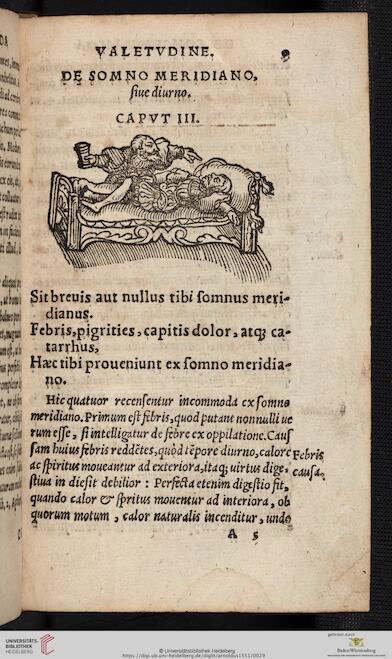 VALETVDINE. 9
DE SOMNO MERIDIANO,
siue diurno.
CAPVT III.
Sit breuis aut nullus tibi somnus meri-
dianus.
Febris, pigrities, capitis dolor, atq; ca-
tarrhus,
Hæc tibi proueniunt ex somno meridia-
no.
Hic quatuor recensentur incommoda ex somno
meridiano. Primum est febris, quod putant nonnulli ue
rum esse, si intelligatur de febre ex oppilatione. Caus
sam huius febris reddētes, quòd tēpore diurno, calore
ac spiritus moueantur ad exteriora, itaq; uirtus dige-
stiua in die sit debilior : Perfecta etenim digestio fit,
quando calor & spritus mouentur ad interiora, ob
quorum motum, calor naturalis incenditur, unde
Febris
causa.
A 5
UNIVERSITÄTS-
BIBLIOTHEK
HEIDELBERG
© Universitätsbibliothek Heidelberg
https://digi.ub.uni-heidelberg.de/diglit/arnoldus1551/0029
gefördert durch
Baden-Württemberg